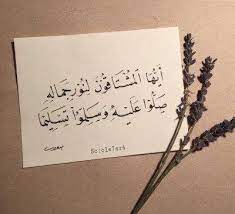 أَيُّهَا الْمُشْتَاقُونَ لِنُورِ جَمَالِهِ
صَلُّوا عَلَيْهِ وَسَلِّمُوا تَسْلِيمًا